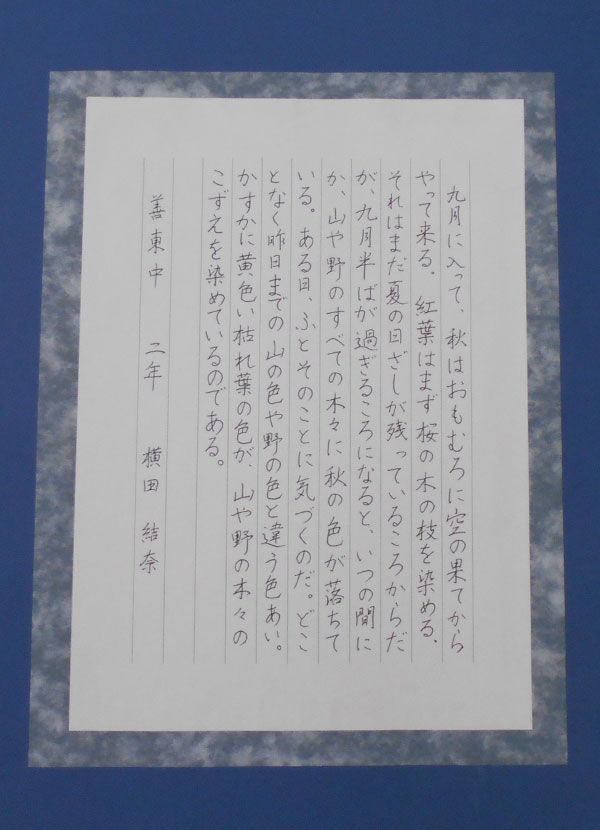 九月に入って、秋はおもむろに空の果てから
やって来る。紅葉はまず桜の木の枝を染める。
それはまだ夏の日ざしが残っているころからだ
が、九月半ばが過ぎるころになると、いつの間に
か、山や野のすべての木々に秋の色が落ちて
いる。ある日、ふとそのことに気づくのだ。どこ
となく昨日までの山の色や野の色と違う色あい。
かすかに黄色い枯れ葉の色が、山や野の木々の
こずえを染めているのである。
善東中 二年 横田結奈